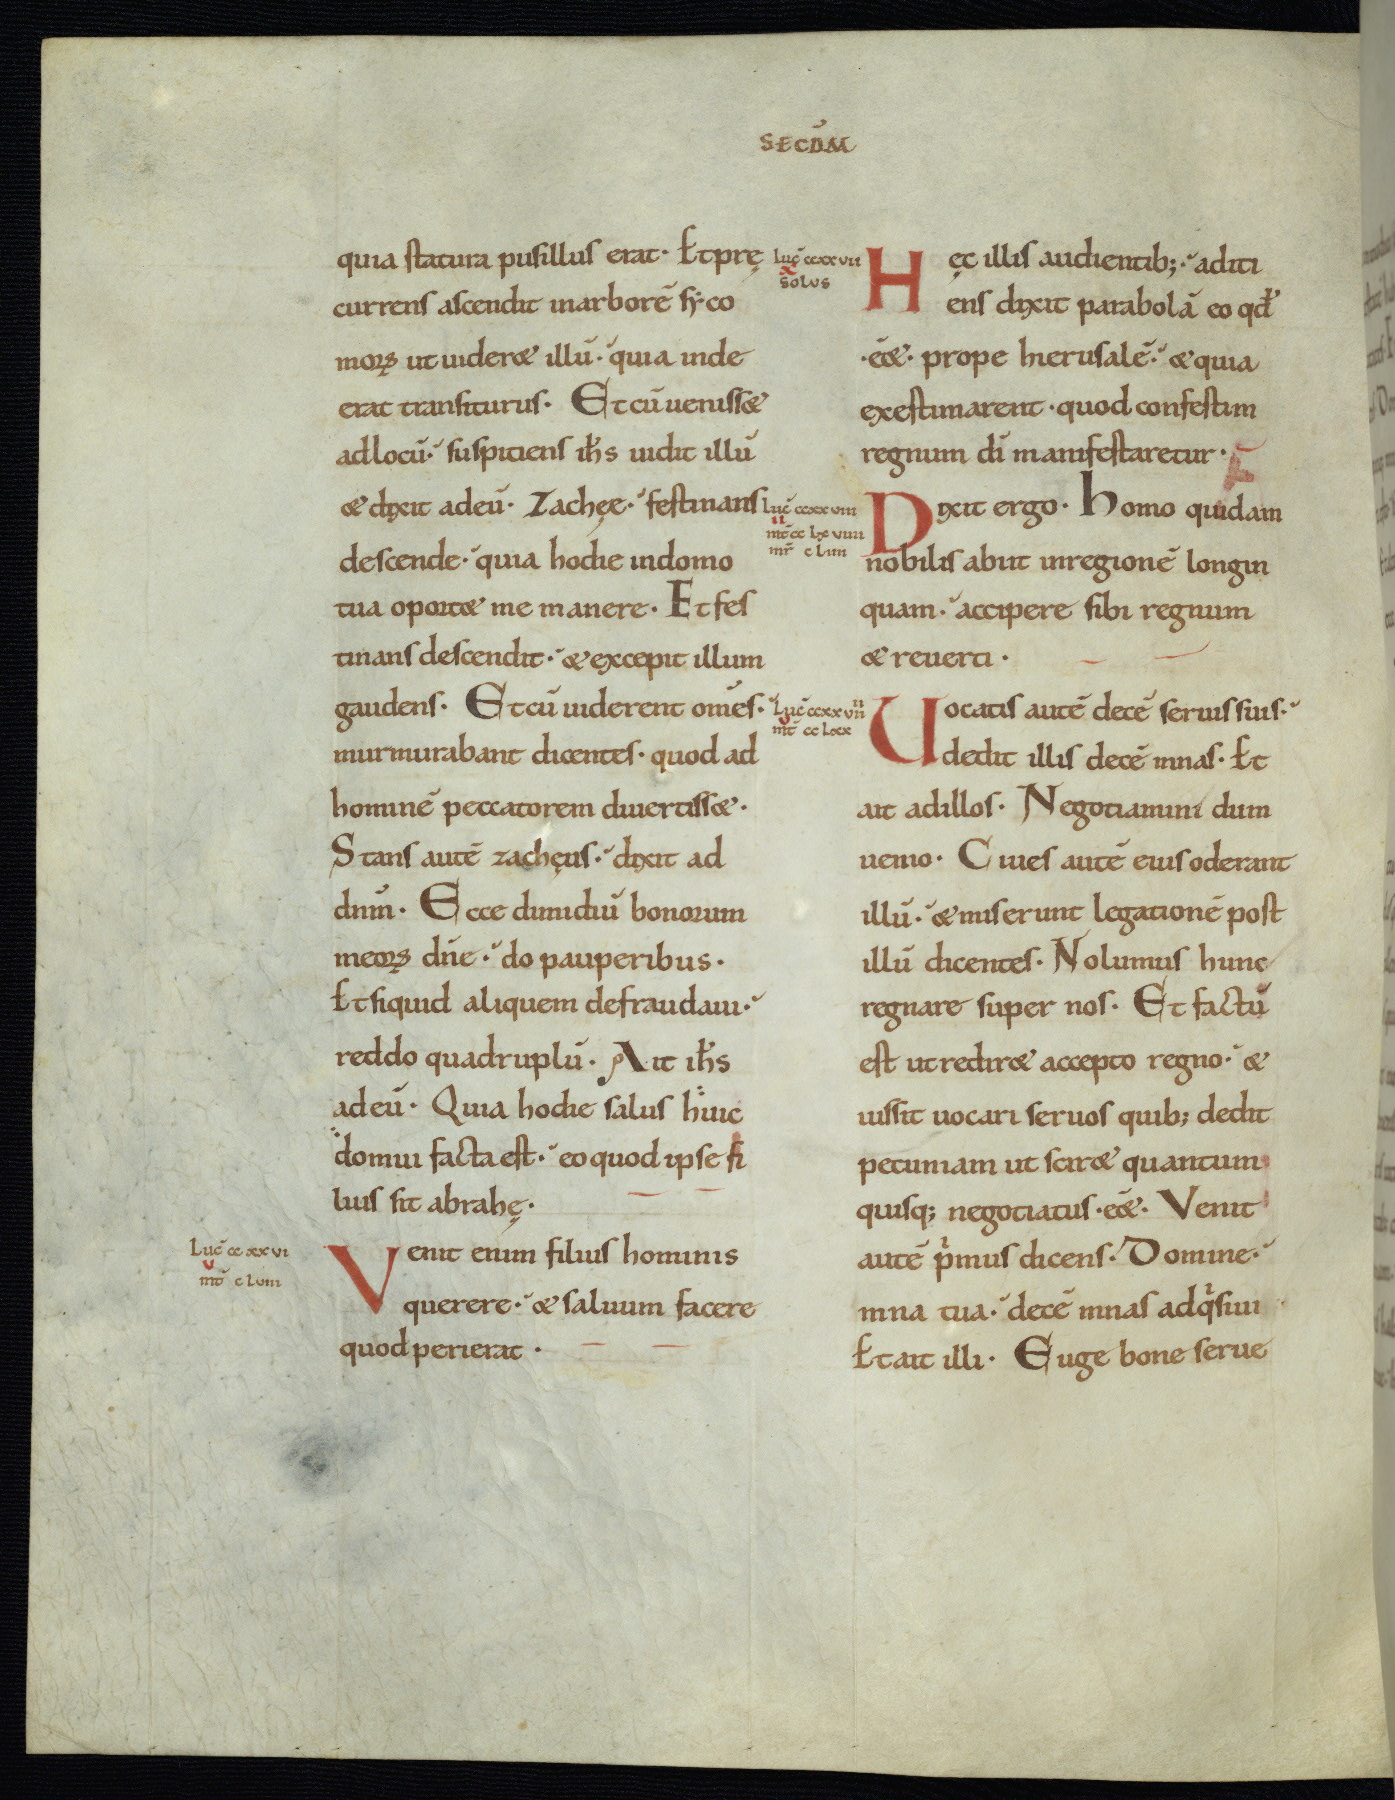 SECŪM
quia statura pusillus erat· Et prę
currens ascendit in arborē sẏco
moꝝ ut uideret illū· quia inde
erat transiturus· Et cū uenisset
ad locū· suspiciens ih̄s uidit illū
et dixit ad eū· Zachęe· festinans
descende· quia hodie in domo
tua oportet me manere· Et fes
tinans descendit· et excepit illum
gaudens· Et cū uiderent om̄es·
murmurabant dicentes· quod ad
hominē peccatorem diuertisset·
Stans autē zachęus· dixit ad
dn̄m· Ecce dimidiū bonorum
meoꝝ dn̄e· do pauperibus·
Et si quid aliquem defraudaui·
reddo quadruplū· Ait ih̄s
ad eū· Quia hodie salus huic
domui facta est· eo quod ipse fi
lius sit abrahę·
Luc̄ cc xx vi
mt̄ c lviii
Venit enim filius hominis
querere· et saluum facere
quod perierat·
Luc̄ ccxx vii
solus
Hęc illis audientib;· adici
ens dixit parabolā eo qđ
·eēt· prope hierusalē· et quia
existimarent· quod confestim
regnum dī manifestaretur·
Luc̄ ccxx viii
mt̄ cc lx viiii
mr̄ c liii
Dixit ergo· homo quidam
nobilis abiit in regionē longin
quam· accipere sibi regnum
et reuerti·
Luc̄ ccxx viiii
mt̄ cc lxx
Uocatis autē decē seruis suis·
dedit illis decē mnas· Et
ait ad illos· Negotiamini dum
uenio· Ciues autē eius oderant
illū· et miserunt legationē post
illū dicentes· Nolumus hunc
regnare super nos· Et factū
est ut rediret accepto regno· et
iussit uocari seruos quib; dedit
pecuniam ut sciret quantum
quisq; negotiatus ·eēt· Venit
autē pͥmus dicens· Domine·
mna tua· decē mnas adqͥsiui
Et ait illi· Euge bone serue